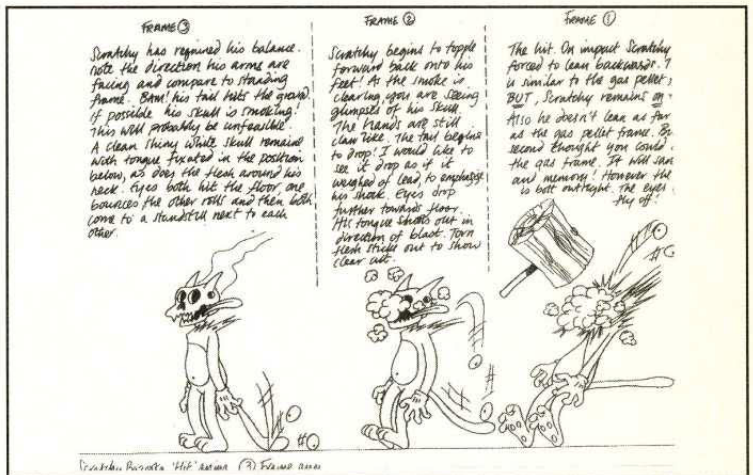 FRAME ③
Scratchy has regained his balance.
note the direction his arms are
facing and compare to standing
frame. BAM! his tail hits the ground.
if possible his skull is smoking!
This will probably be unfeasible.
A clean shiny white skull remains
with tongue fixated in the position
below, as does the flesh around his
neck. Eyes both hit the floor, one
bounces the other rolls and then both
come to a standstill next to each
other.
FRAME ②
Scratchy begins to topple
forward back onto his
feet! As the smoke is
clearing, you are seeing
glimpses of his skull.
The hands are still
claw like. The tail begins
to drop! I would like to
see it drop as if it
weighed of lead, to emphasize
his shock. Eyes drop
further towards floor.
His tongue shoots out in
direction of blast. Torn
flesh sticks out to show
clear cut.
FRAME ①
The hit. On impact Scratchy
forced to lean backwards.
is similar to the gas pellet,
BUT, Scratchy remains on
Also he doesn't lean as far
as the gas pellet frame.
second thought you could
the gas frame. It will
and memory! However the
is bolt outright. The eyes
fly off!
Scratchy 'Hit' ③ Frame